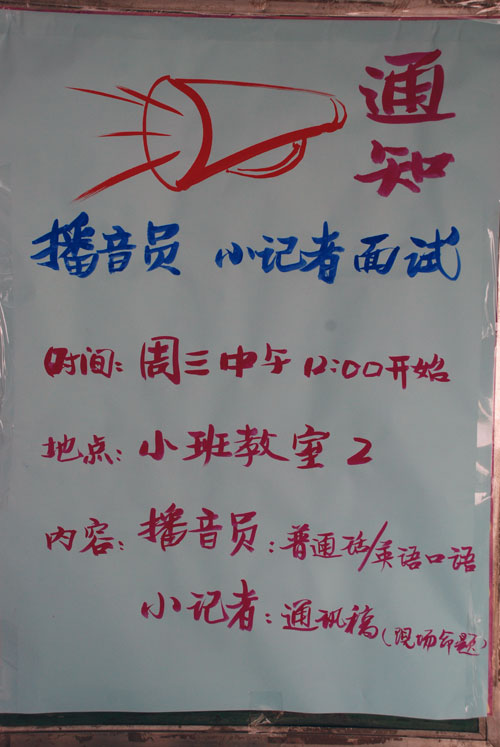 通知
播音员 小记者面试
时间：周三中午12:00开始
地点：小班教室2
内容：播音员：普通话/英语口语
小记者：通讯稿(现场命题)